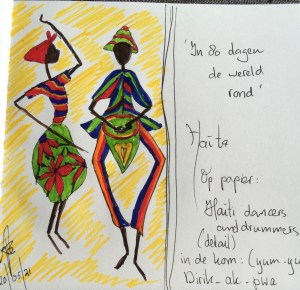 'In 80 dagen
de wereld
rond'
Haïti
Op papier:
Haïti dancers
and drummers
(detail)
in de kom: (yum-yu
Dirik-ak-pwa
20/05/21